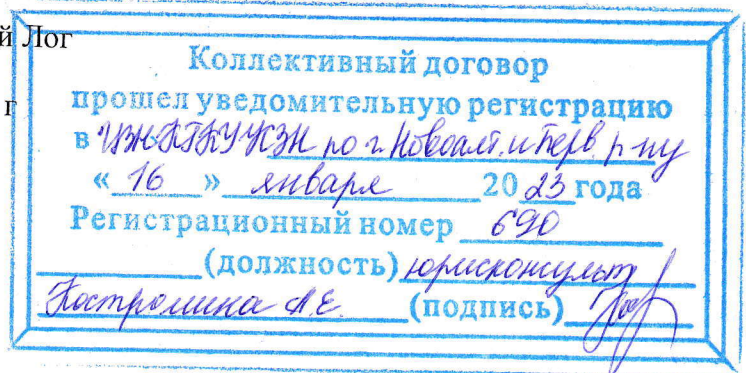 й Лог
г
Коллективный договор
прошел уведомительную регистрацию
в ЦЗН КГКУ УСЗН по г. Новоалт. и Перв. р-ну
« 16 » января 20 23 года
Регистрационный номер 690
(должность) юрисконсульт
Костромина А.Е. (подпись)